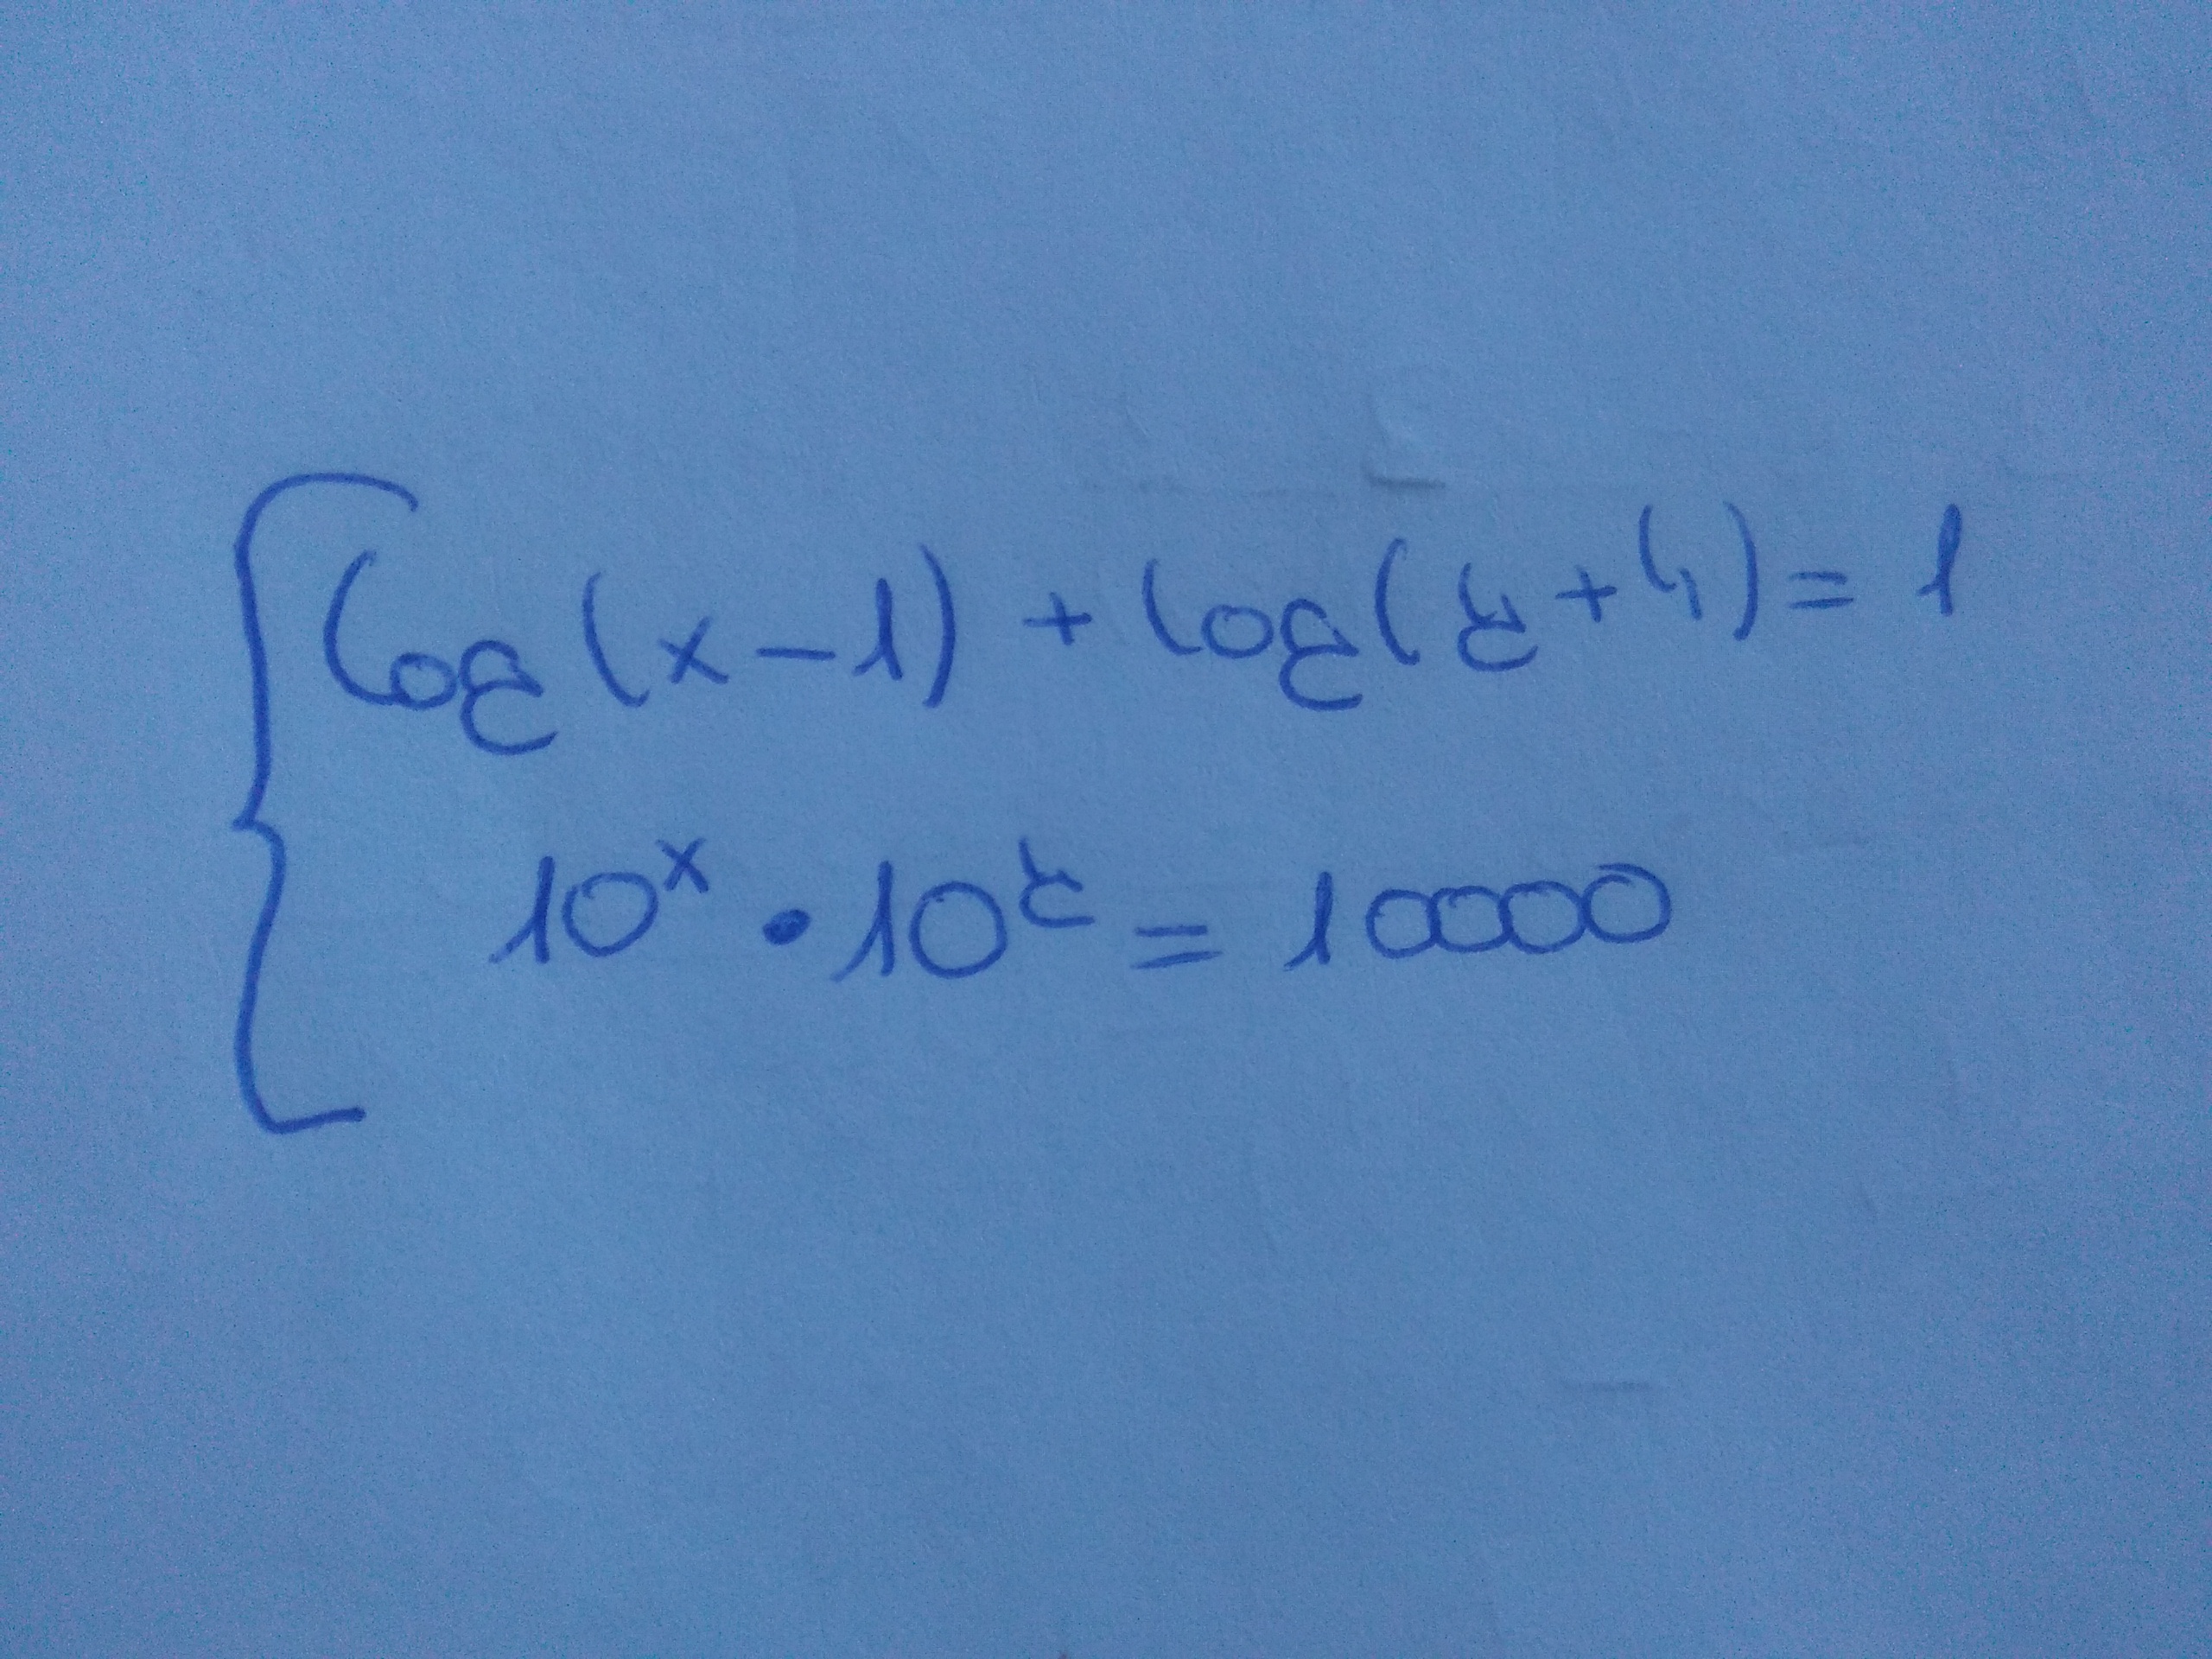 log(x-1) + log(y+4) = 1
10^x · 10^y = 10000